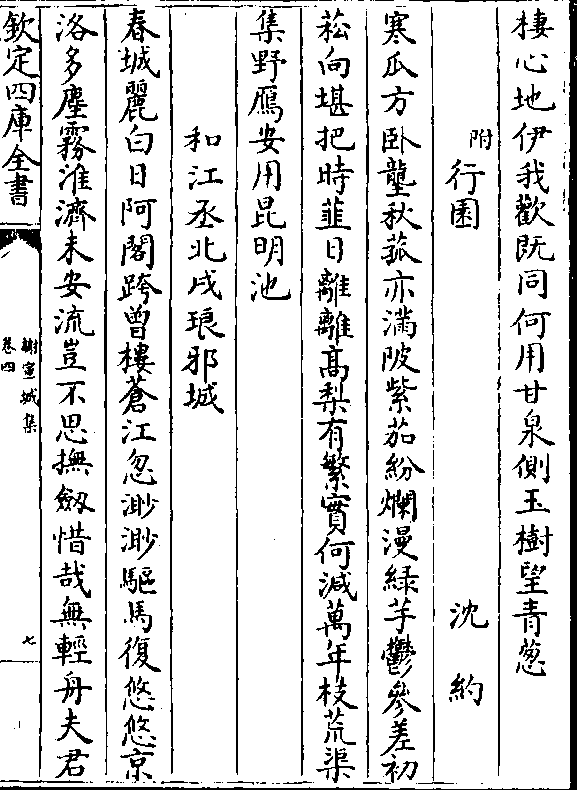 棲心地伊我歡既同何用甘泉側玉樹望青葱
附 行園 沈約
寒瓜方卧壟秋菰亦滿陂紫茄紛爛漫綠芋鬱參差初
菘向堪把時韮日離離高梨有繁實何減萬年枝荒渠
集野鴈安用昆明池
和江丞北戍琅邪城
春城麗白日阿閣跨曾樓蒼江忽渺渺驅馬復悠悠京
洛多塵霧淮濟未安流豈不思撫劔惜哉無輕舟夫君
欽定四庫全書
謝宣城集
卷四
七